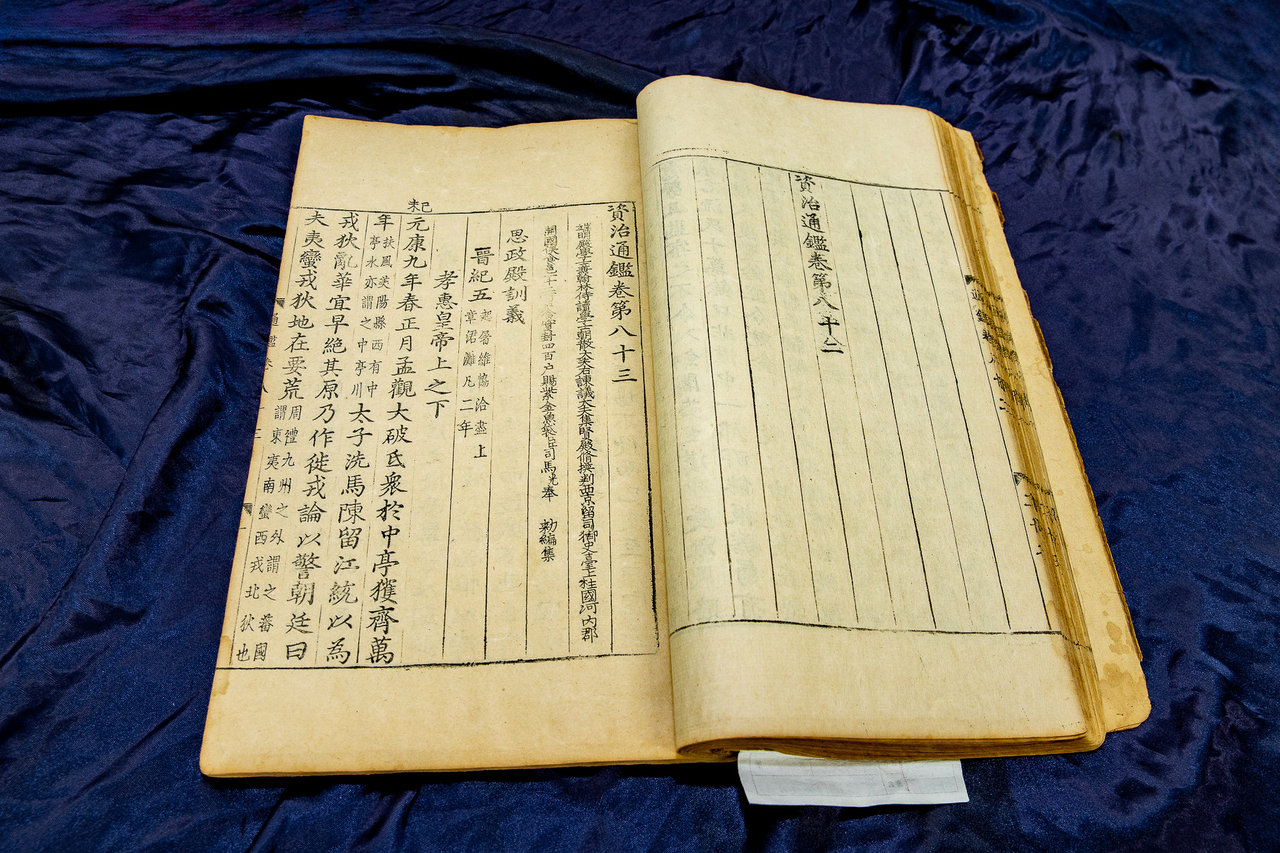 資治通鑑卷第八十二
資治通鑑卷第八十三
端明殿學士兼翰林侍讀學士朝散大夫右諫議大夫集賢殿脩撰判西京留司御史臺上柱國河內郡
開國侯食邑一千三百戶食實封四百戶賜紫金魚袋臣司馬光奉 勅編集
思政殿訓義
晉紀五 起屠維協洽盡上
章涒灘凡二年
孝惠皇帝上之下
己未
元康九年春正月孟觀大破氐衆於中亭獲齊萬
年 扶風美陽縣西有中
亭水亦謂之中亭川 太子洗馬陳留江統以為
戎狄亂華宜早絕其原乃作徙戎論以警朝廷曰
夫夷蠻戎狄地在要荒 周禮九州之外謂之蕃國
謂東夷南蠻西戎北狄也